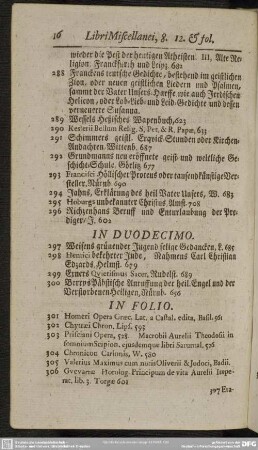 16 Libri Miscellanei, 8. 12. & fol.
wieder die Pest der heutigen Atheisten. III, Alte Re-
ligion. Franckfurth und Leipz. 682
288 Franckens teutsche Gedichte, bestehend im geistlichen
Zion, oder neuen geistlichen Liedern und Psalmen,
sammt der Vater Unsers Harffe, wie auch Jrrdischen
Helicon, oder Lob-Lieb- und Leid-Gedichte und dessen
verneuerte Susanna.
289 Wessels Hessisches Wapenbuch, 623
290 Kesleri Bellum Relig. N. Pet. & R. Papæ, 633
291 Schimmers geistl. Erqvick-Stunden oder Kirchen-
Andachten. Wittenb. 687
292 Grundmanns neu eröffnete geist- und weltliche Ge-
schicht-Schule. Görlitz 677
293 Francisci Höllischer Proteus oder tausendkünstige Ver-
steller. Nürnb. 690
294 Jahns, Erklärung des heil Vater Unsers, W. 683
295 Hobargs unbekannter Christus Amst. 708
296 Richzenhans Beruff und Enturlaubung der Pre-
diger, J. 602
IN DUODECIMO.
297 Weisens grünender Jugend selige Gedancken. L. 685
298 Hemici bekehrter Jude, Nahmens Carl Christian
Edzards, Helmst. 679
299 Erners Qvietismus Sacer, Rudelst. 689
300 Berrys Päbstische Anruffung der heil. Engel und der
Verstorbenen Heiligen, Nürnb. 696
IN FOLIO.
301 Homeri Opera Græc. Lat. a Castal. edita, Basil. 561
302 Chytræi Chron. Lips. 593
303 Prisciani Opera, 528 Macrobii Aurelii Theodosii in
somnium Scipion. ejusdemque libri Saturnal. 526
304 Chronicon Carionis, W. 580
305 Valerius Maximus cum notis Oliverii & Jodoci, Badii.
306 Gvevaræ Horolog. Principum de vita Aurelii Impe-
rat, lib. 3. Torgæ 601